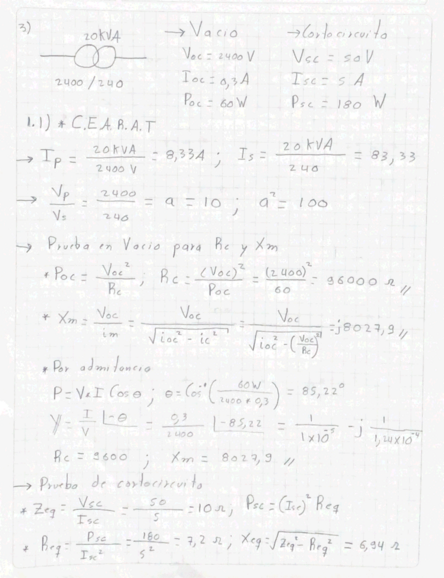 3)
20KVA
2400/240
→ Vacio
Voc = 2400 V
Ioc = 0,3 A
Poc = 60 W
→ Cortocircuito
Vcc = 50 V
Isc = 5 A
Psc = 180 W
1.1) * C.E.A.R.A.T
→ Ip = 20KVA / 2400 V = 8,33A ; Is = 20KVA / 240 = 83,33
→ Vp / Vs = 2400 / 240 = a = 10 ; a² = 100
→ Prueba en Vacio para Rc y Xm
* Poc = Voc² / Rc ; Rc = (Voc)² / Poc = (2400)² / 60 = 96000 Ω //
* Xm = Voc / im = Voc / √(ioc² - ic²) = Voc / √(ioc² - (Voc / Rc)²) = j8027,9 //
* Por admitancia
P = V*I Cosθ ; θ = Cos⁻¹ (60W / 2400*0,3) = 85,22°
Y = I / V ∟-θ = 0,3 / 2400 ∟-85,22 = 1 / 1x10⁻⁵ - j 1 / 1,24x10⁻⁴
Rc = 9600 ; Xm = 8027,9 //
→ Prueba de cortocircuito
* Zeq = Vsc / Isc = 50 / 5 = 10 Ω , Psc = (Isc)² Req
* Req = Psc / Isc² = 180 / 5² = 7,2 Ω ; Xeq = √(Zeq² - Req²) = 6,94 Ω